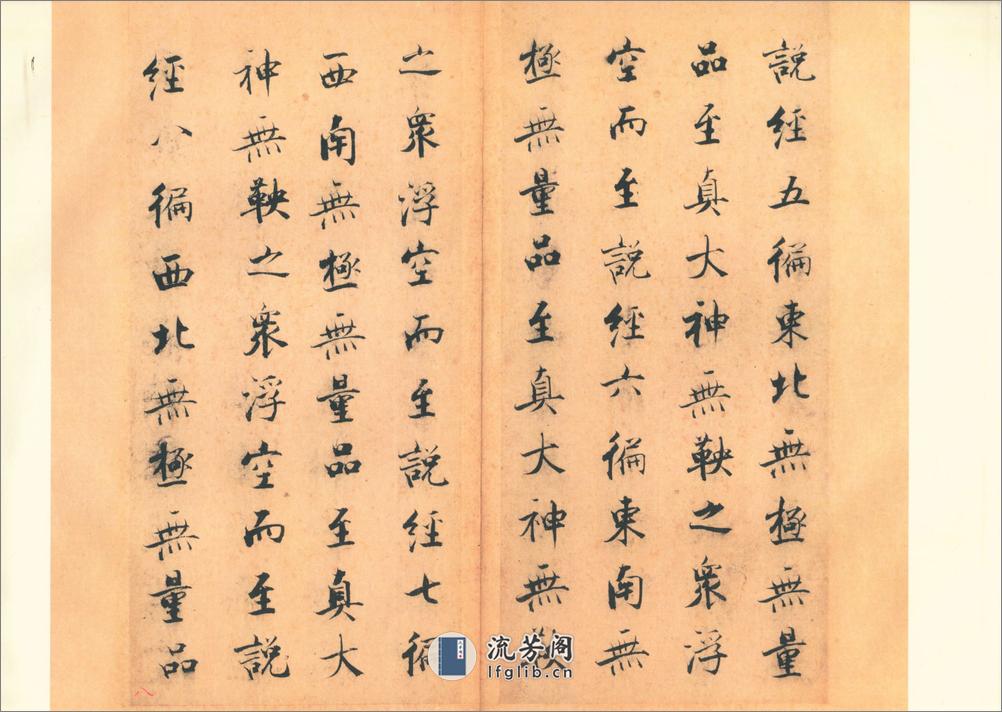 説經五徧東北無極無量
品至真大神無鞅之衆浮
空而至説經六徧東南無
極無量品至真大神無
之衆浮空而至説經七徧
西南無極無量品至真大
神無鞅之衆浮空而至説
經八徧西北無極無量品
八
流芳阁
lfglib.cn